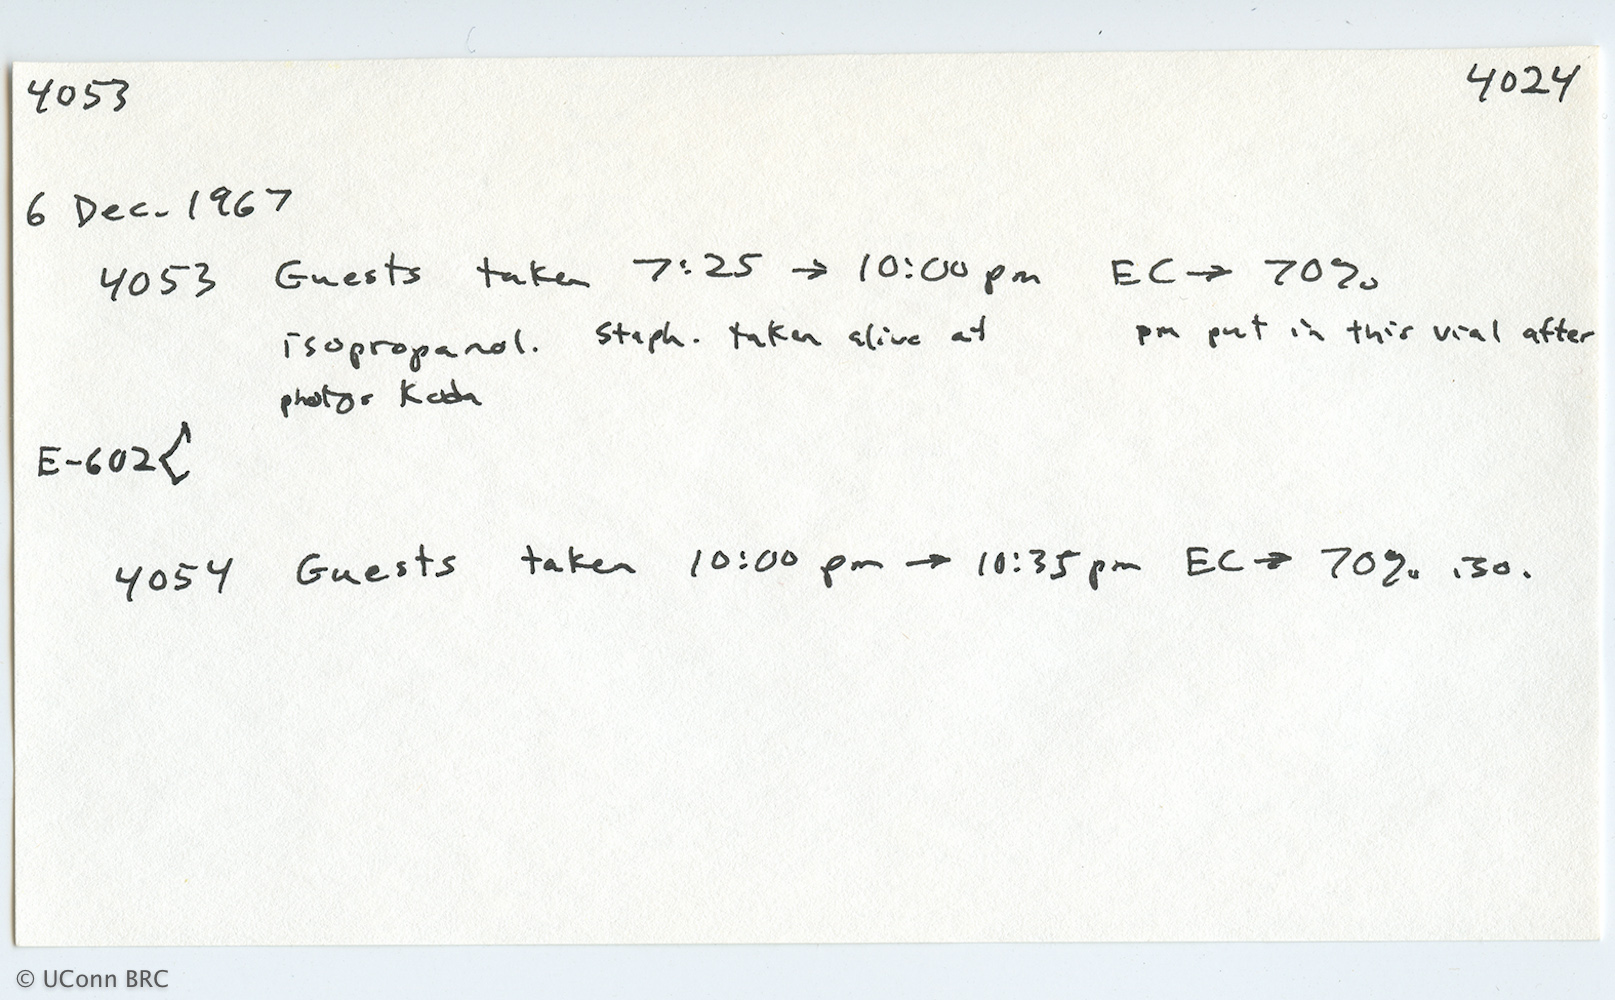 4053 4024
6 Dec. 1967
4053 Guests taken 7:25 → 10:00 pm EC → 70%
isopropanol. Staph. taken alive at pm put in this vial after
photgr
E-602<
4054 Guests taken 10:00 pm → 10:35 pm EC → 70% iso.
© UConn BRC